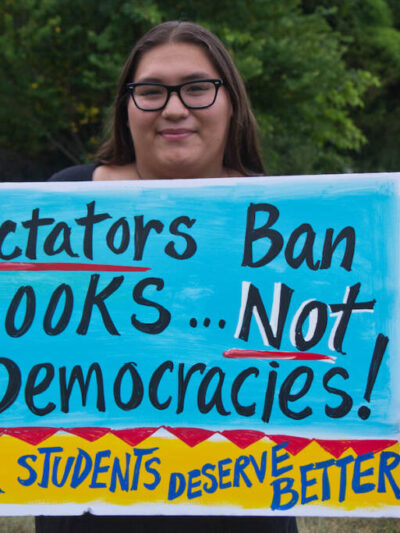 ctators Ban
ooks...Not
Democracies!
STUDENTS DESERVE BETTER